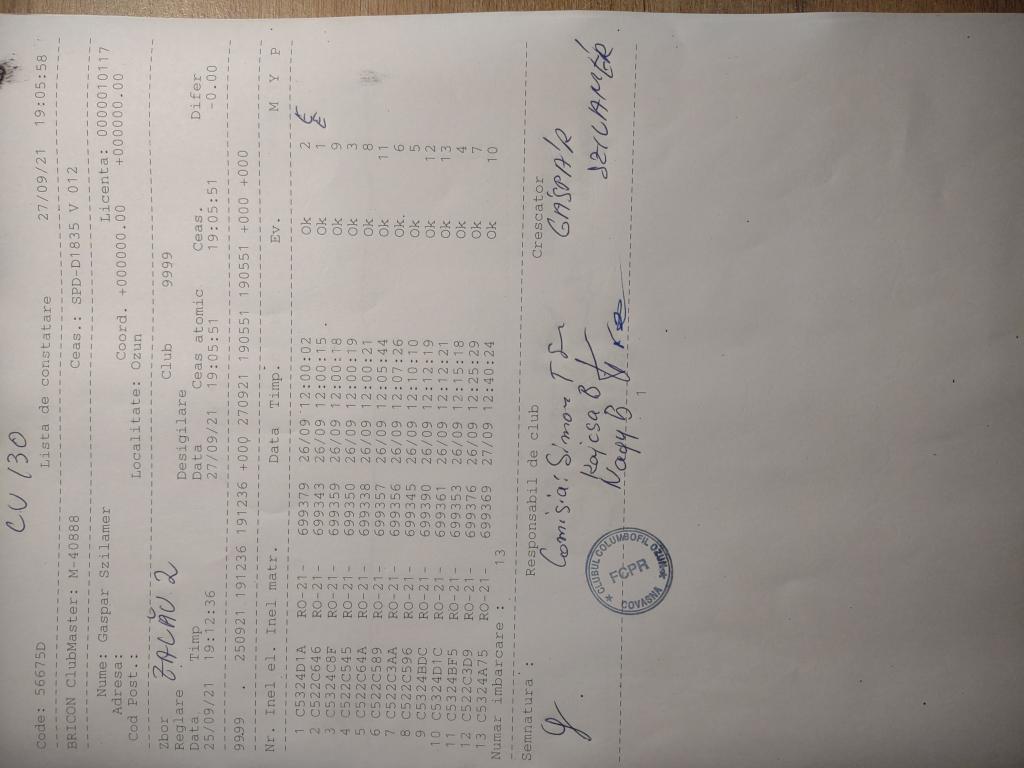 CU 130
Code: 56675D Lista de constatare 27/09/21 19:05:58
BRICON ClubMaster: M-40888 Ceas.: SPD-D1835 V 012
Nume: Gaspar Szilamer Licenta: 0000010117
Adresa: Coord. +000000.00 +000000.00
Cod Post.: Localitate: Ozun
Zbor ZALĂU 2 Club 9999
Reglare Desigilare
Data Timp Data Ceas atomic Ceas. Difer
25/09/21 19:12:36 27/09/21 19:05:51 19:05:51 0.00
9999 . 250921 191236 191236 +000 270921 190551 190551 +000 +000
Nr. Inel el. Inel matr. Data Timp. Ev. M Y P .
1 C5324D1A RO-21- 699379 26/09 12:00:02 Ok 2
2 C522C646 RO-21- 699343 26/09 12:00:15 Ok 1
3 C5324C8F RO-21- 699359 26/09 12:00:18 Ok 9
4 C522C545 RO-21- 699350 26/09 12:00:19 Ok 3
5 C522C64A RO-21- 699338 26/09 12:00:21 Ok 8
6 C522C589 RO-21- 699357 26/09 12:05:44 Ok 11
7 C522C3AA RO-21- 699356 26/09 12:07:26 Ok. 6
8 C522C596 RO-21- 699345 26/09 12:10:10 Ok 5
9 C5324BDC RO-21- 699390 26/09 12:12:19 Ok 12
10 C5324D1C RO-21- 699361 26/09 12:12:21 Ok 13
11 C5324BF5 RO-21- 699353 26/09 12:15:18 Ok 4
12 C522C3D9 RO-21- 699376 26/09 12:25:29 Ok 7
13 C5324A75 RO-21- 699369 27/09 12:40:24 Ok 10
Numar imbarcare : 13
Semnatura : Responsabil de club Crescator
Comisia: Simon T GÁSPÁR
Kojcsa B SZILAMÉR
Nagy B
CLUBUL COLUMBOFIL OZUN
FCPR
COVASNA
1